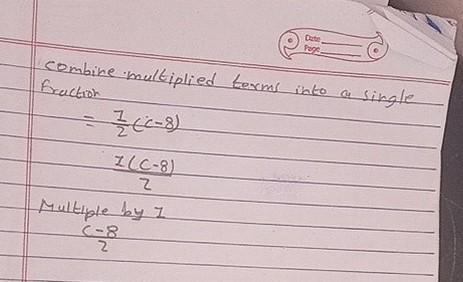 Date
Page
combine multiplied terms into a single
fraction
= 1/2 (c-8)
1(c-8)/2
Multiple by 1
c-8/2